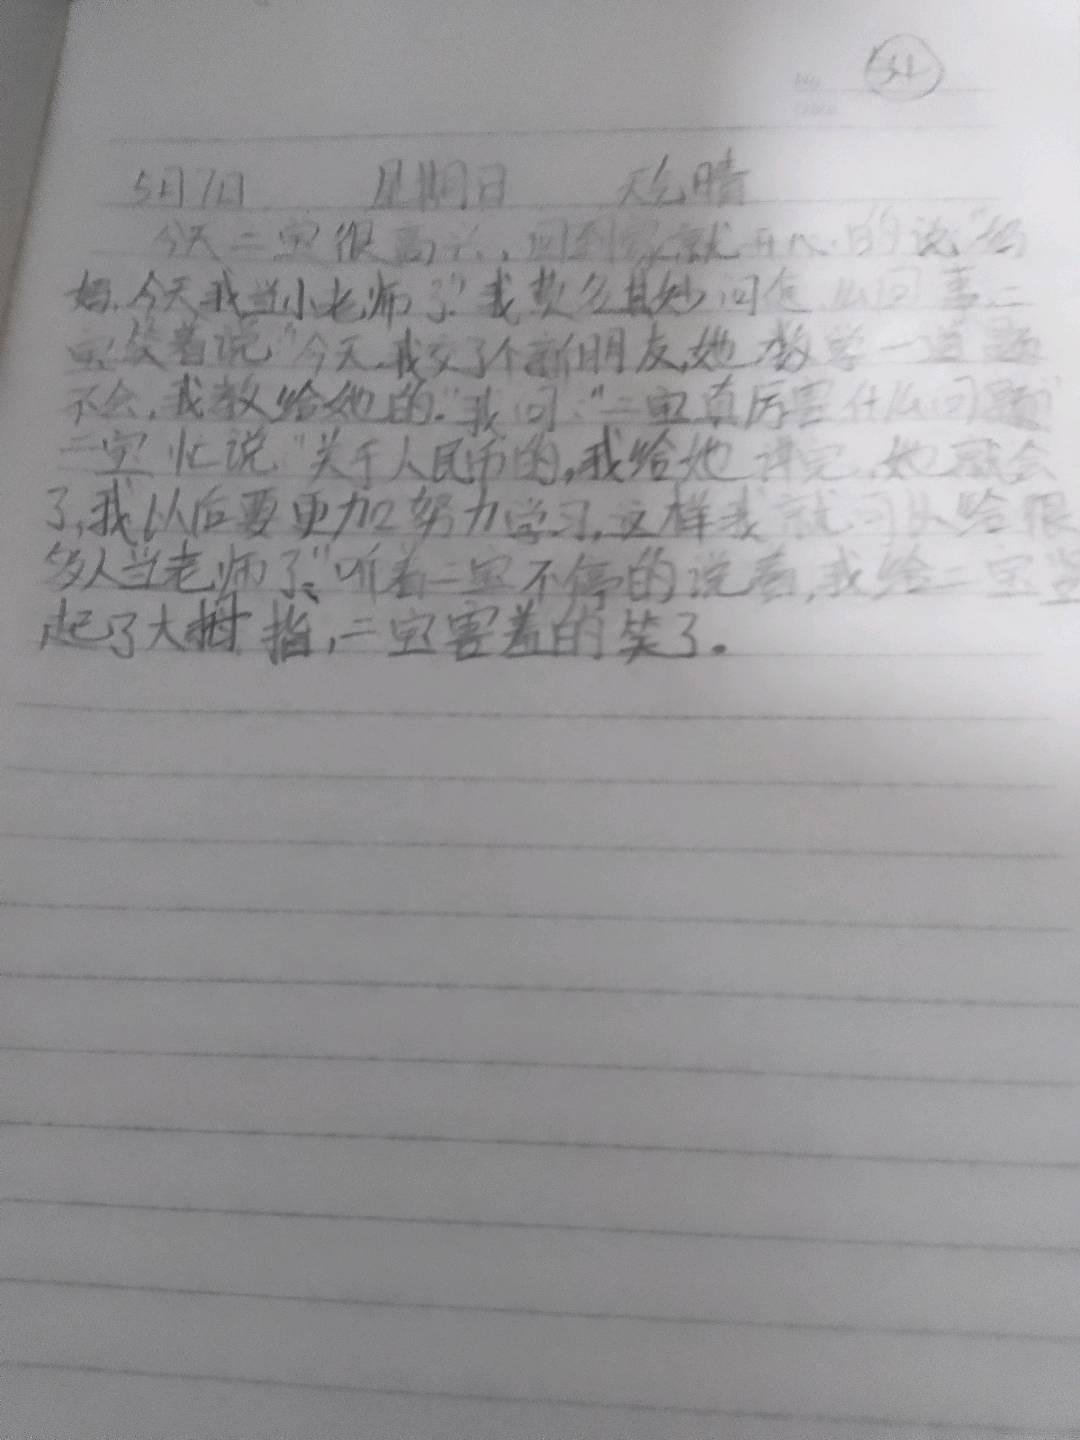 5月7日 星期日 天气晴
今天二宝很高兴,回到家就开心的说"妈
妈,今天我当小老师了"我莫名其妙问怎么回事,二
宝笑着说"今天,我交了个新朋友,她数学一道题
不会,我教给她的."我问:"二宝真厉害什么问题"
二宝忙说"关于人民币的,我给她讲完,她就会
了,我以后要更加努力学习,这样我就可以给很
多人当老师了。"听着二宝不停的说着,我给二宝竖
起了大拇指,二宝害羞的笑了。